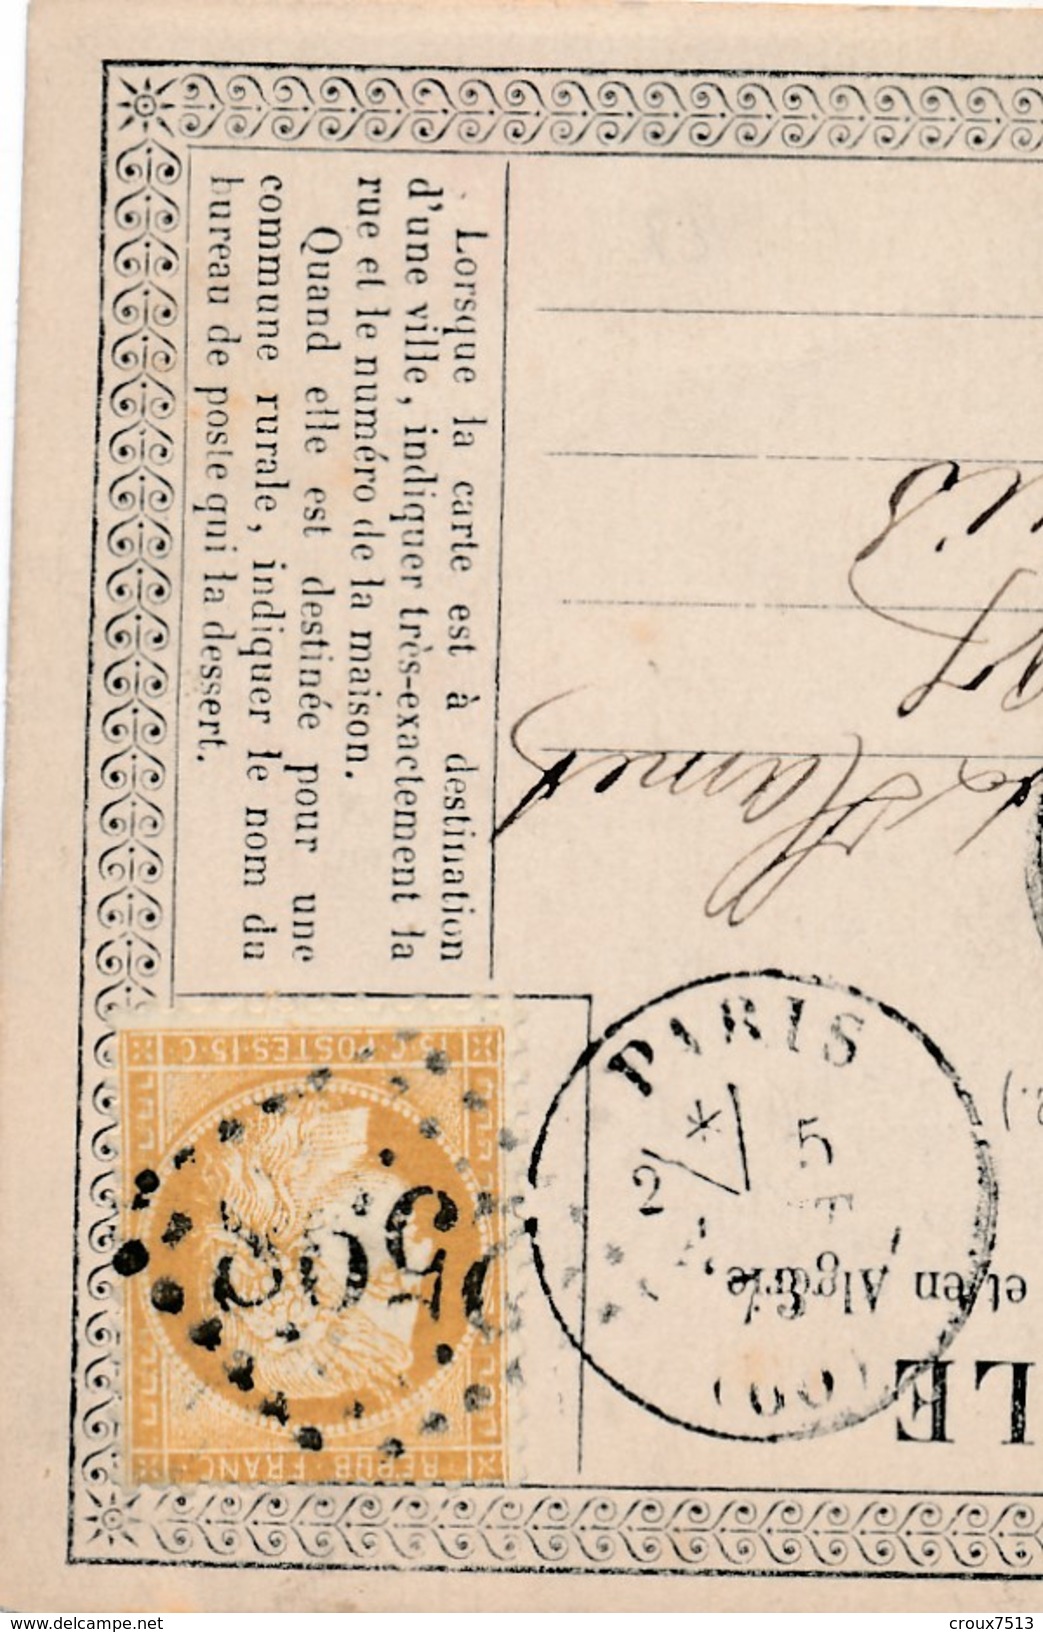 Lorsque la carte est à destination
d'une ville, indiquer très-exactement la
rue et le numéro de la maison.
Quand elle est destinée pour une
commune rurale, indiquer le nom du
bureau de poste qui la dessert.
15·C·POSTES·15·C
REPUB·FRANC
PARIS
2
5
(60)
et en Algérie,
LE
www.delcampe.net
croux7513